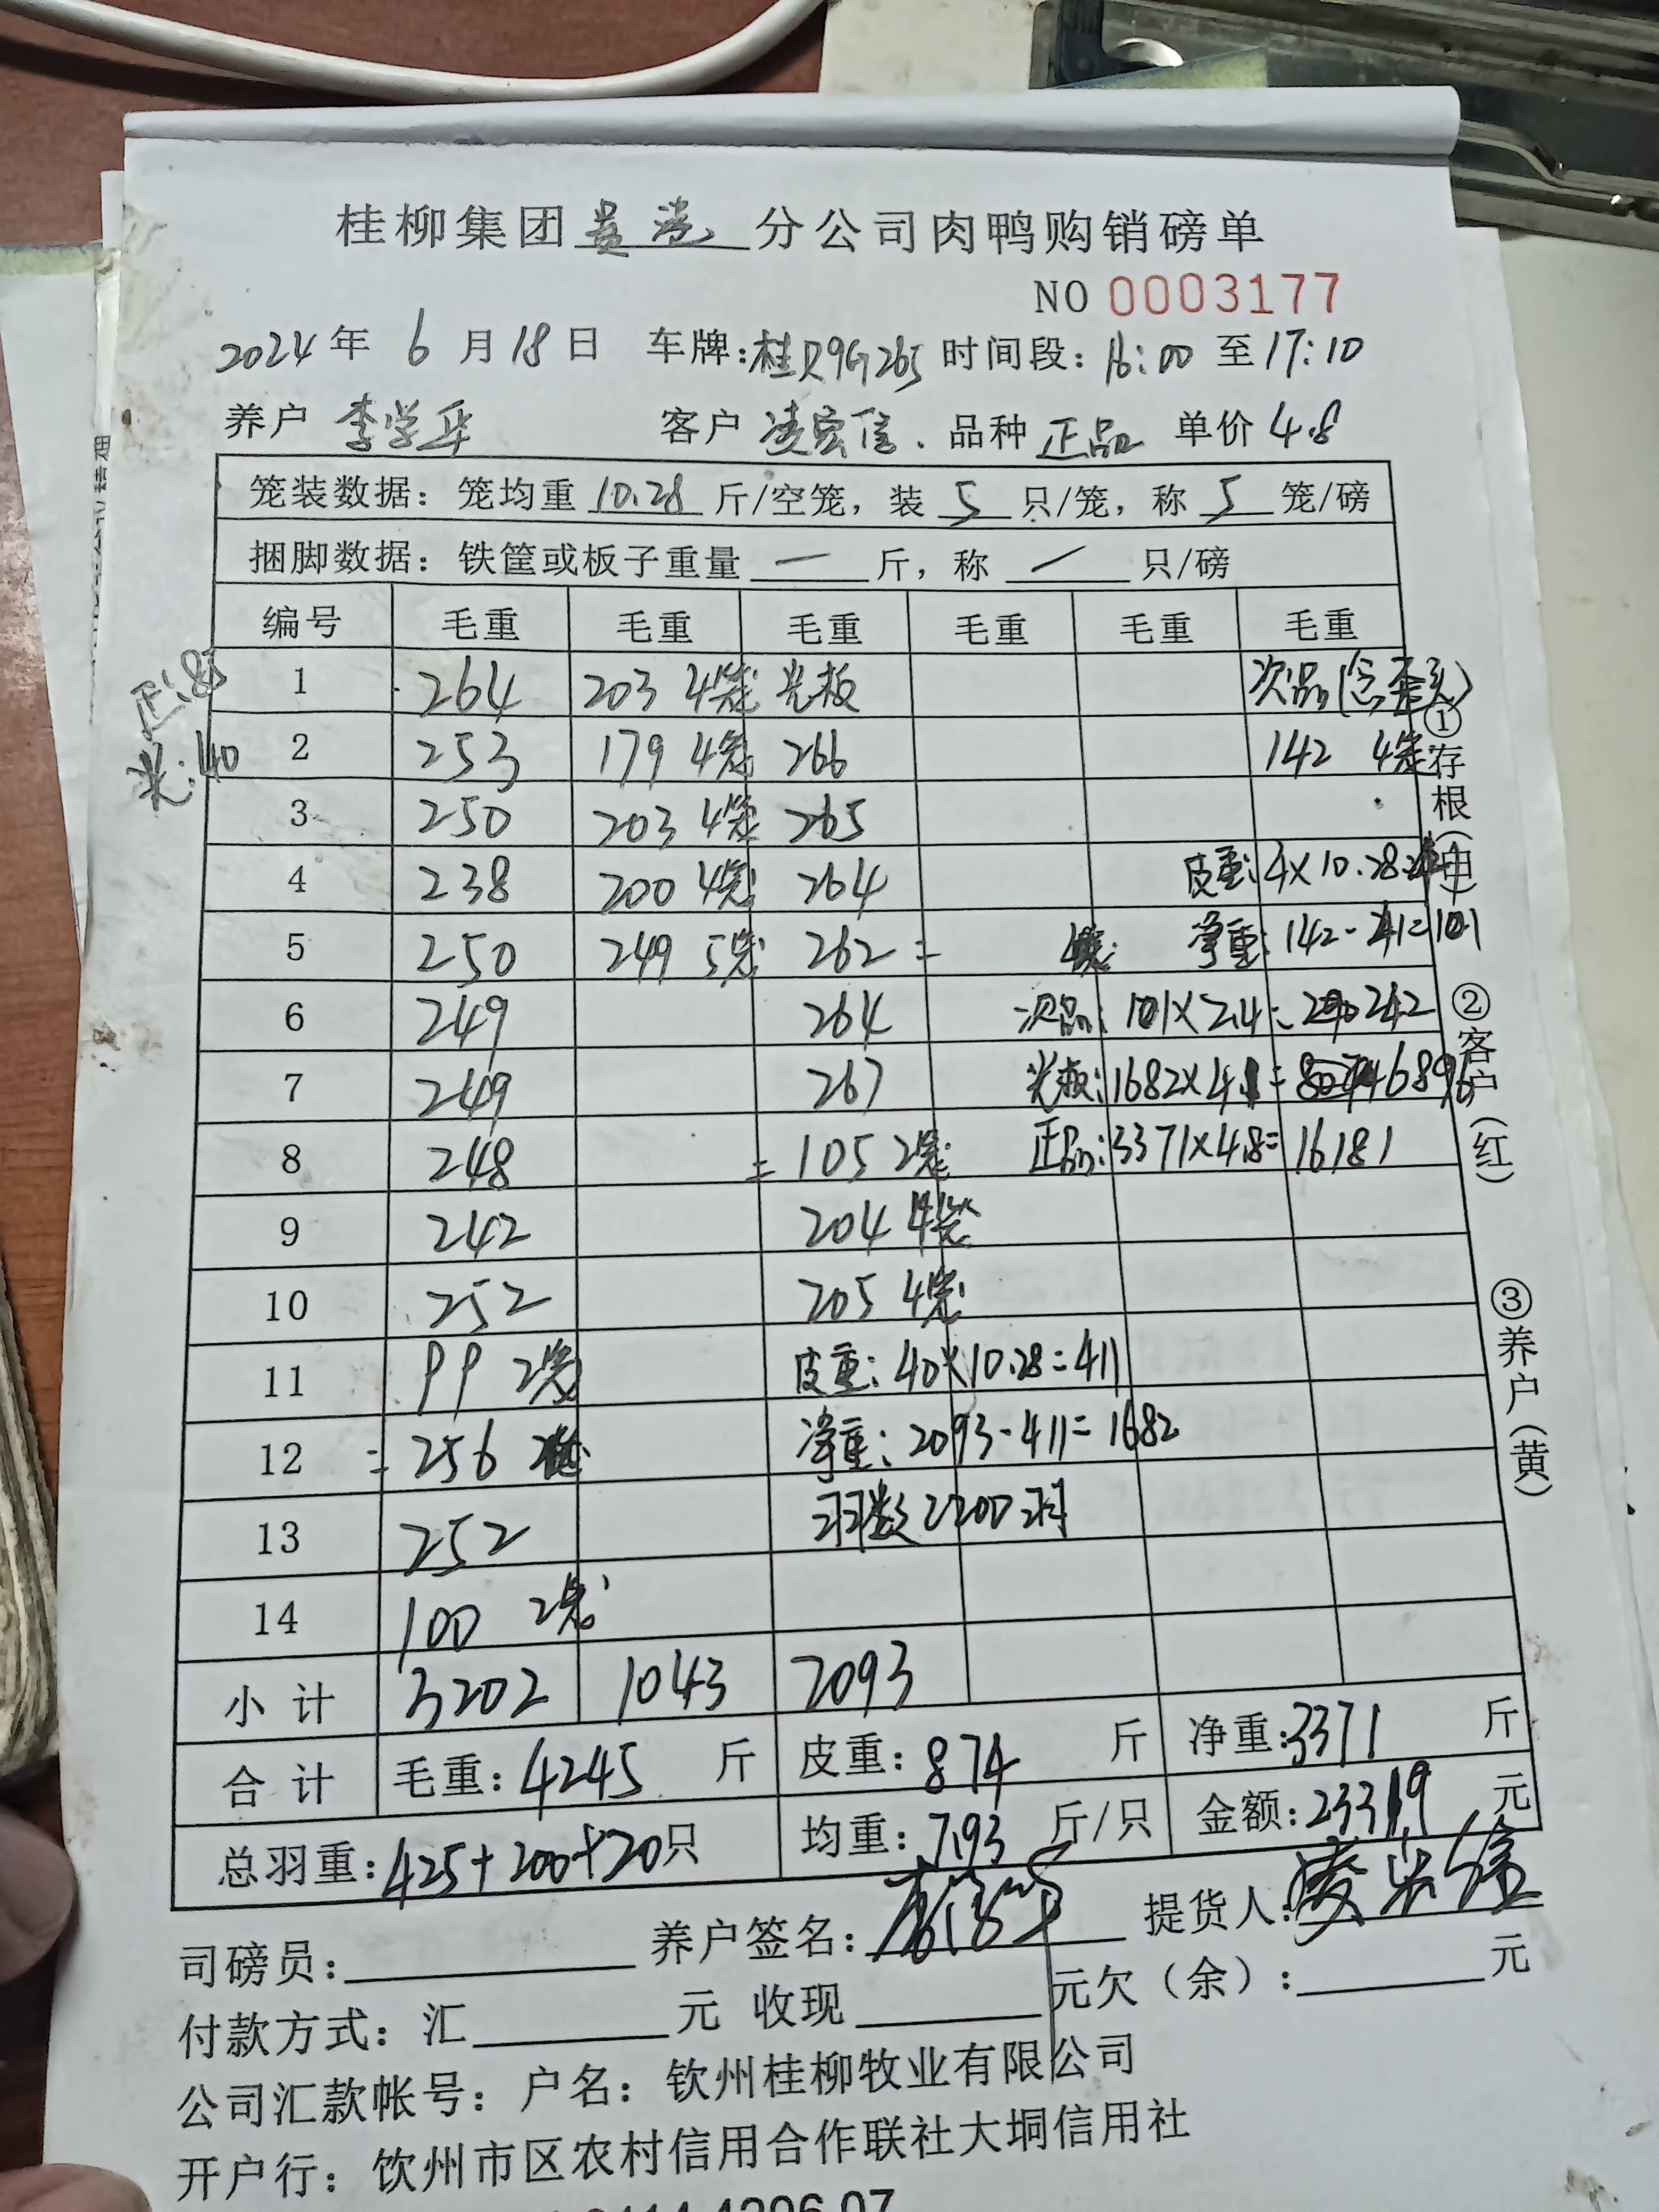 桂柳集团贵港分公司肉鸭购销磅单
NO 0003177
2024年 6月18日 车牌:桂R9G265 时间段:16:00至17:10
养户 李学华 客户 凌宏信 . 品种 正品 单价 4.8
笼装数据：笼均重 10.28 斤/空笼，装 5 只/笼，称 5 笼/磅
捆脚数据：铁筐或板子重量 一 斤，称 / 只/磅
编号 毛重 毛重 毛重 毛重 毛重 毛重
1 264 203 4笼 光板 次品
正:85
2 253 179 4笼 266 142 4笼
光:40
3 250 203 4笼 265
4 238 200 4笼 264 皮重:4×10.28
5 250 249 5笼 262 = 净重:142-41=101
6 249 264 次品:101×2.4= 242
7 249 267 光板:1682×4.1= 6896
8 248 = 105 2笼 正品:3371×4.8=16181
9 242 204 4笼
10 252 205 4笼
11 99 2笼 皮重:40×10.28=411
12 = 256 净重:2093-411=1682
13 252 羽数200羽
14 100 2笼
小计 3202 1043 2093
合计 毛重:4245 斤 皮重:874 斤 净重:3371 斤
总羽重:425+200+20只 均重:7.93 斤/只 金额:23319 元
①存根(白)
②客户(红)
③养户(黄)
司磅员: 养户签名: 提货人:
付款方式：汇 元 收现 元欠（余）: 元
公司汇款帐号：户名：钦州桂柳牧业有限公司
开户行：钦州市区农村信用合作联社大垌信用社